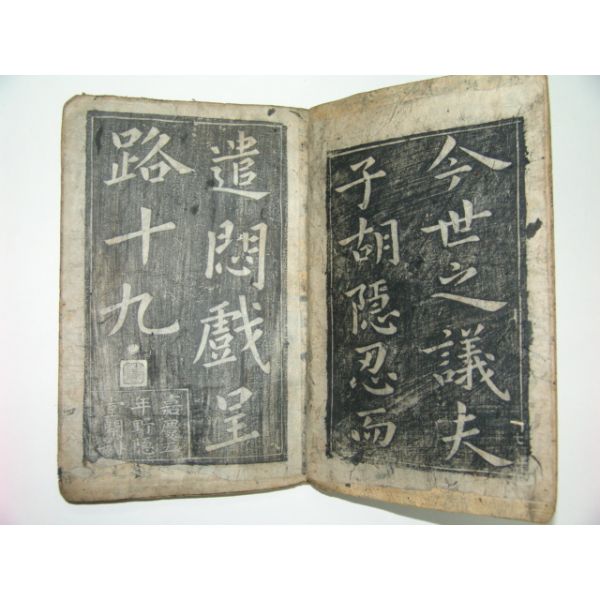 今世之議夫
子胡隱忍而
遣悶戲呈
路十九
嘉慶
年野隱